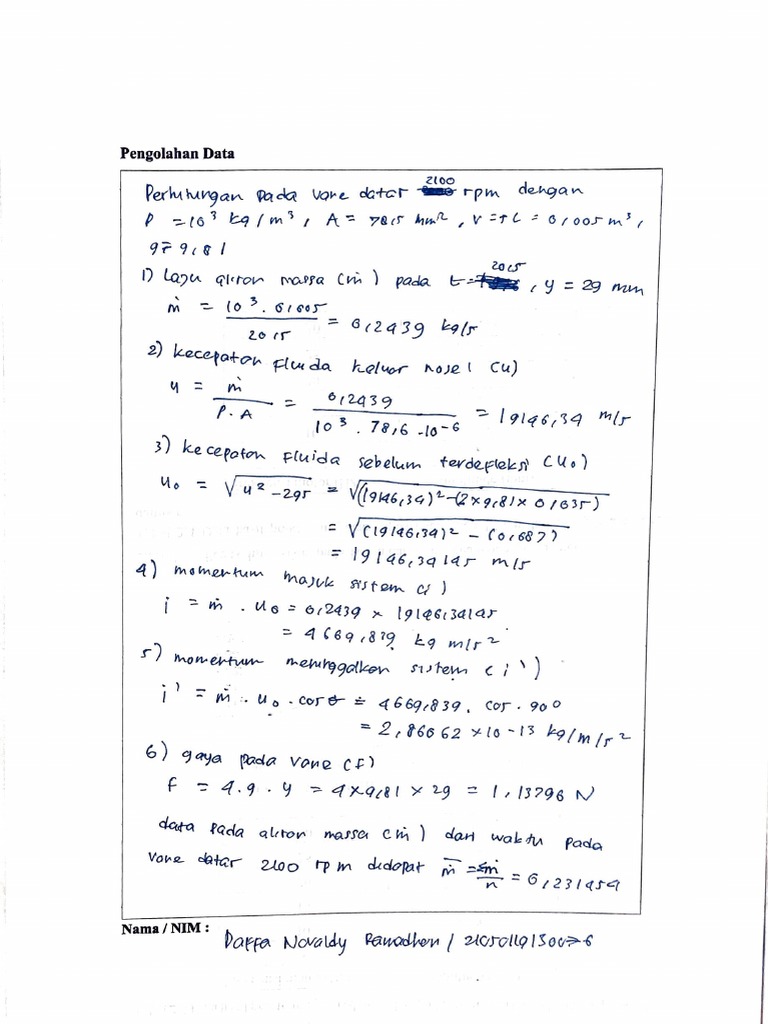 Pengolahan Data
Perhitungan pada vane datar 2100 rpm dengan
ρ = 10³ kg/m³, A = 78,5 mm², V = 5 L = 0,005 m³,
g = 9,81
1) Laju aliran massa (ṁ) pada t = 20,5, y = 29 mm
ṁ = 10³ . 0,005 / 20,5 = 0,2439 kg/s
2) kecepatan Fluida keluar nosel (u)
u = ṁ / ρ.A = 0,2439 / 10³ . 78,6 . 10-6 = 19146,34 m/s
3) kecepatan Fluida sebelum terdefleksi (u₀)
u₀ = √u² - 2gs = √(19146,34)² - (2 x 9,81 x 0,035)
= √(19146,34)² - (0,687)
= 19146,34145 m/s
4) momentum masuk sistem (i)
i = ṁ . u₀ = 0,2439 x 19146,34145
= 4669,839 kg m/s²
5) momentum meninggalkan sistem (i')
i' = ṁ . u₀ . cos θ = 4669,839 . cos . 90°
= 2,86062 x 10 -13 kg/m/s²
6) gaya pada vane (f)
f = 4.g.y = 4 x 9,81 x 29 = 1,13796 N
data pada aliran massa (ṁ) dari waktu pada
vane datar 2100 rpm didapat ṁ̄ = Σṁ / n = 0,231454
Nama / NIM : Daffa Novaldy Ramadhan /